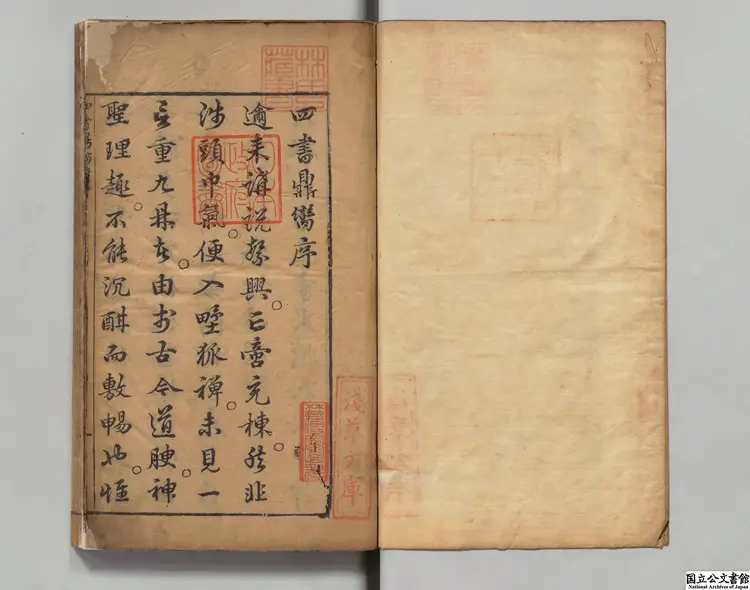 四書鼎臠序
邇来講説繁興。已啻充棟然非
涉頭巾氣。便入野狐禪。未見一
言重九鼎者。由於古今道腴。神
聖理趣。不能沉酣而敷暢也。惟
林氏藏書
日本政府圖書
淺草文庫
国立公文書館
National Archives of Japan